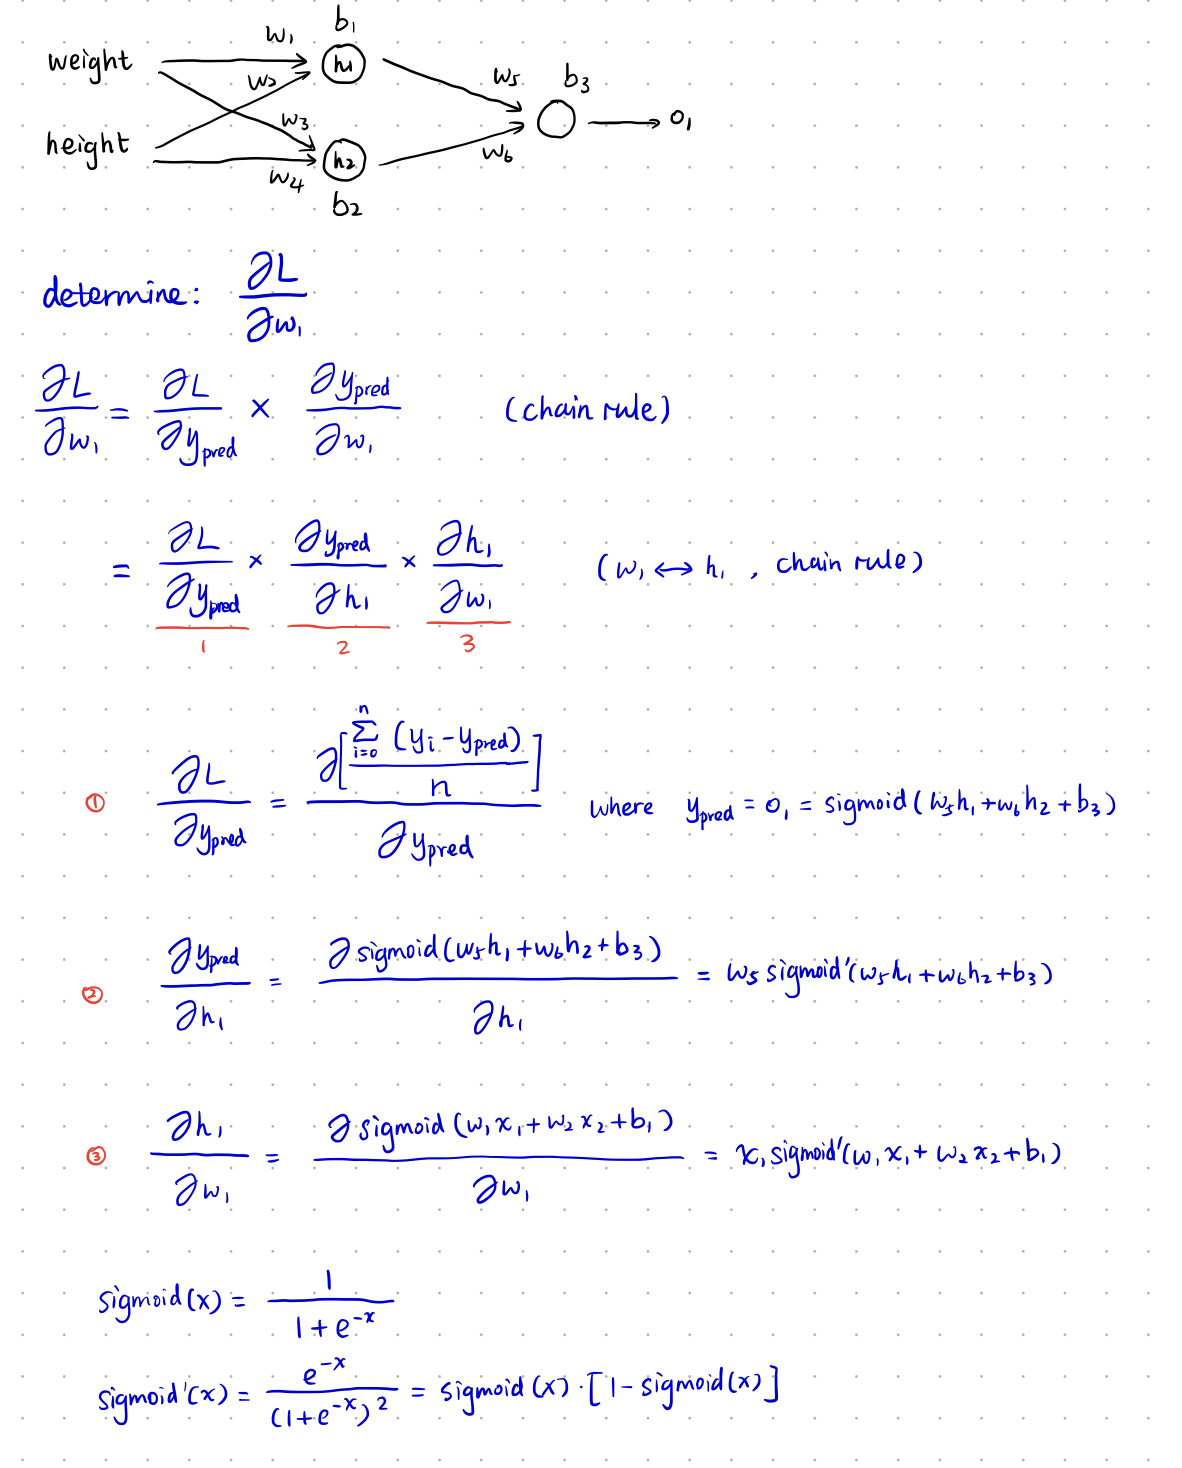 b₁
w₁
weight
h₁
w₂
w₅
b₃
w₃
o₁
height
h₂
w₆
w₄
b₂
determine: ∂L/∂w₁
∂L/∂w₁ = ∂L/∂y_pred × ∂y_pred/∂w₁ (chain rule)
= ∂L/∂y_pred × ∂y_pred/∂h₁ × ∂h₁/∂w₁ (w₁ ↔ h₁, chain rule)
1 2 3
① ∂L/∂y_pred = ∂[∑_{i=0}^{n} (y_i - y_pred)/n]/∂y_pred where y_pred = o₁ = sigmoid(w₅h₁+w₆h₂+b₃)
② ∂y_pred/∂h₁ = ∂sigmoid(w₅h₁+w₆h₂+b₃)/∂h₁ = w₅ sigmoid'(w₅h₁+w₆h₂+b₃)
③ ∂h₁/∂w₁ = ∂sigmoid(w₁x₁+w₂x₂+b₁)/∂w₁ = x₁sigmoid'(w₁x₁+w₂x₂+b₁)
sigmoid(x) = 1/(1+e^{-x})
sigmoid'(x) = e^{-x}/(1+e^{-x})² = sigmoid(x)·[1-sigmoid(x)]